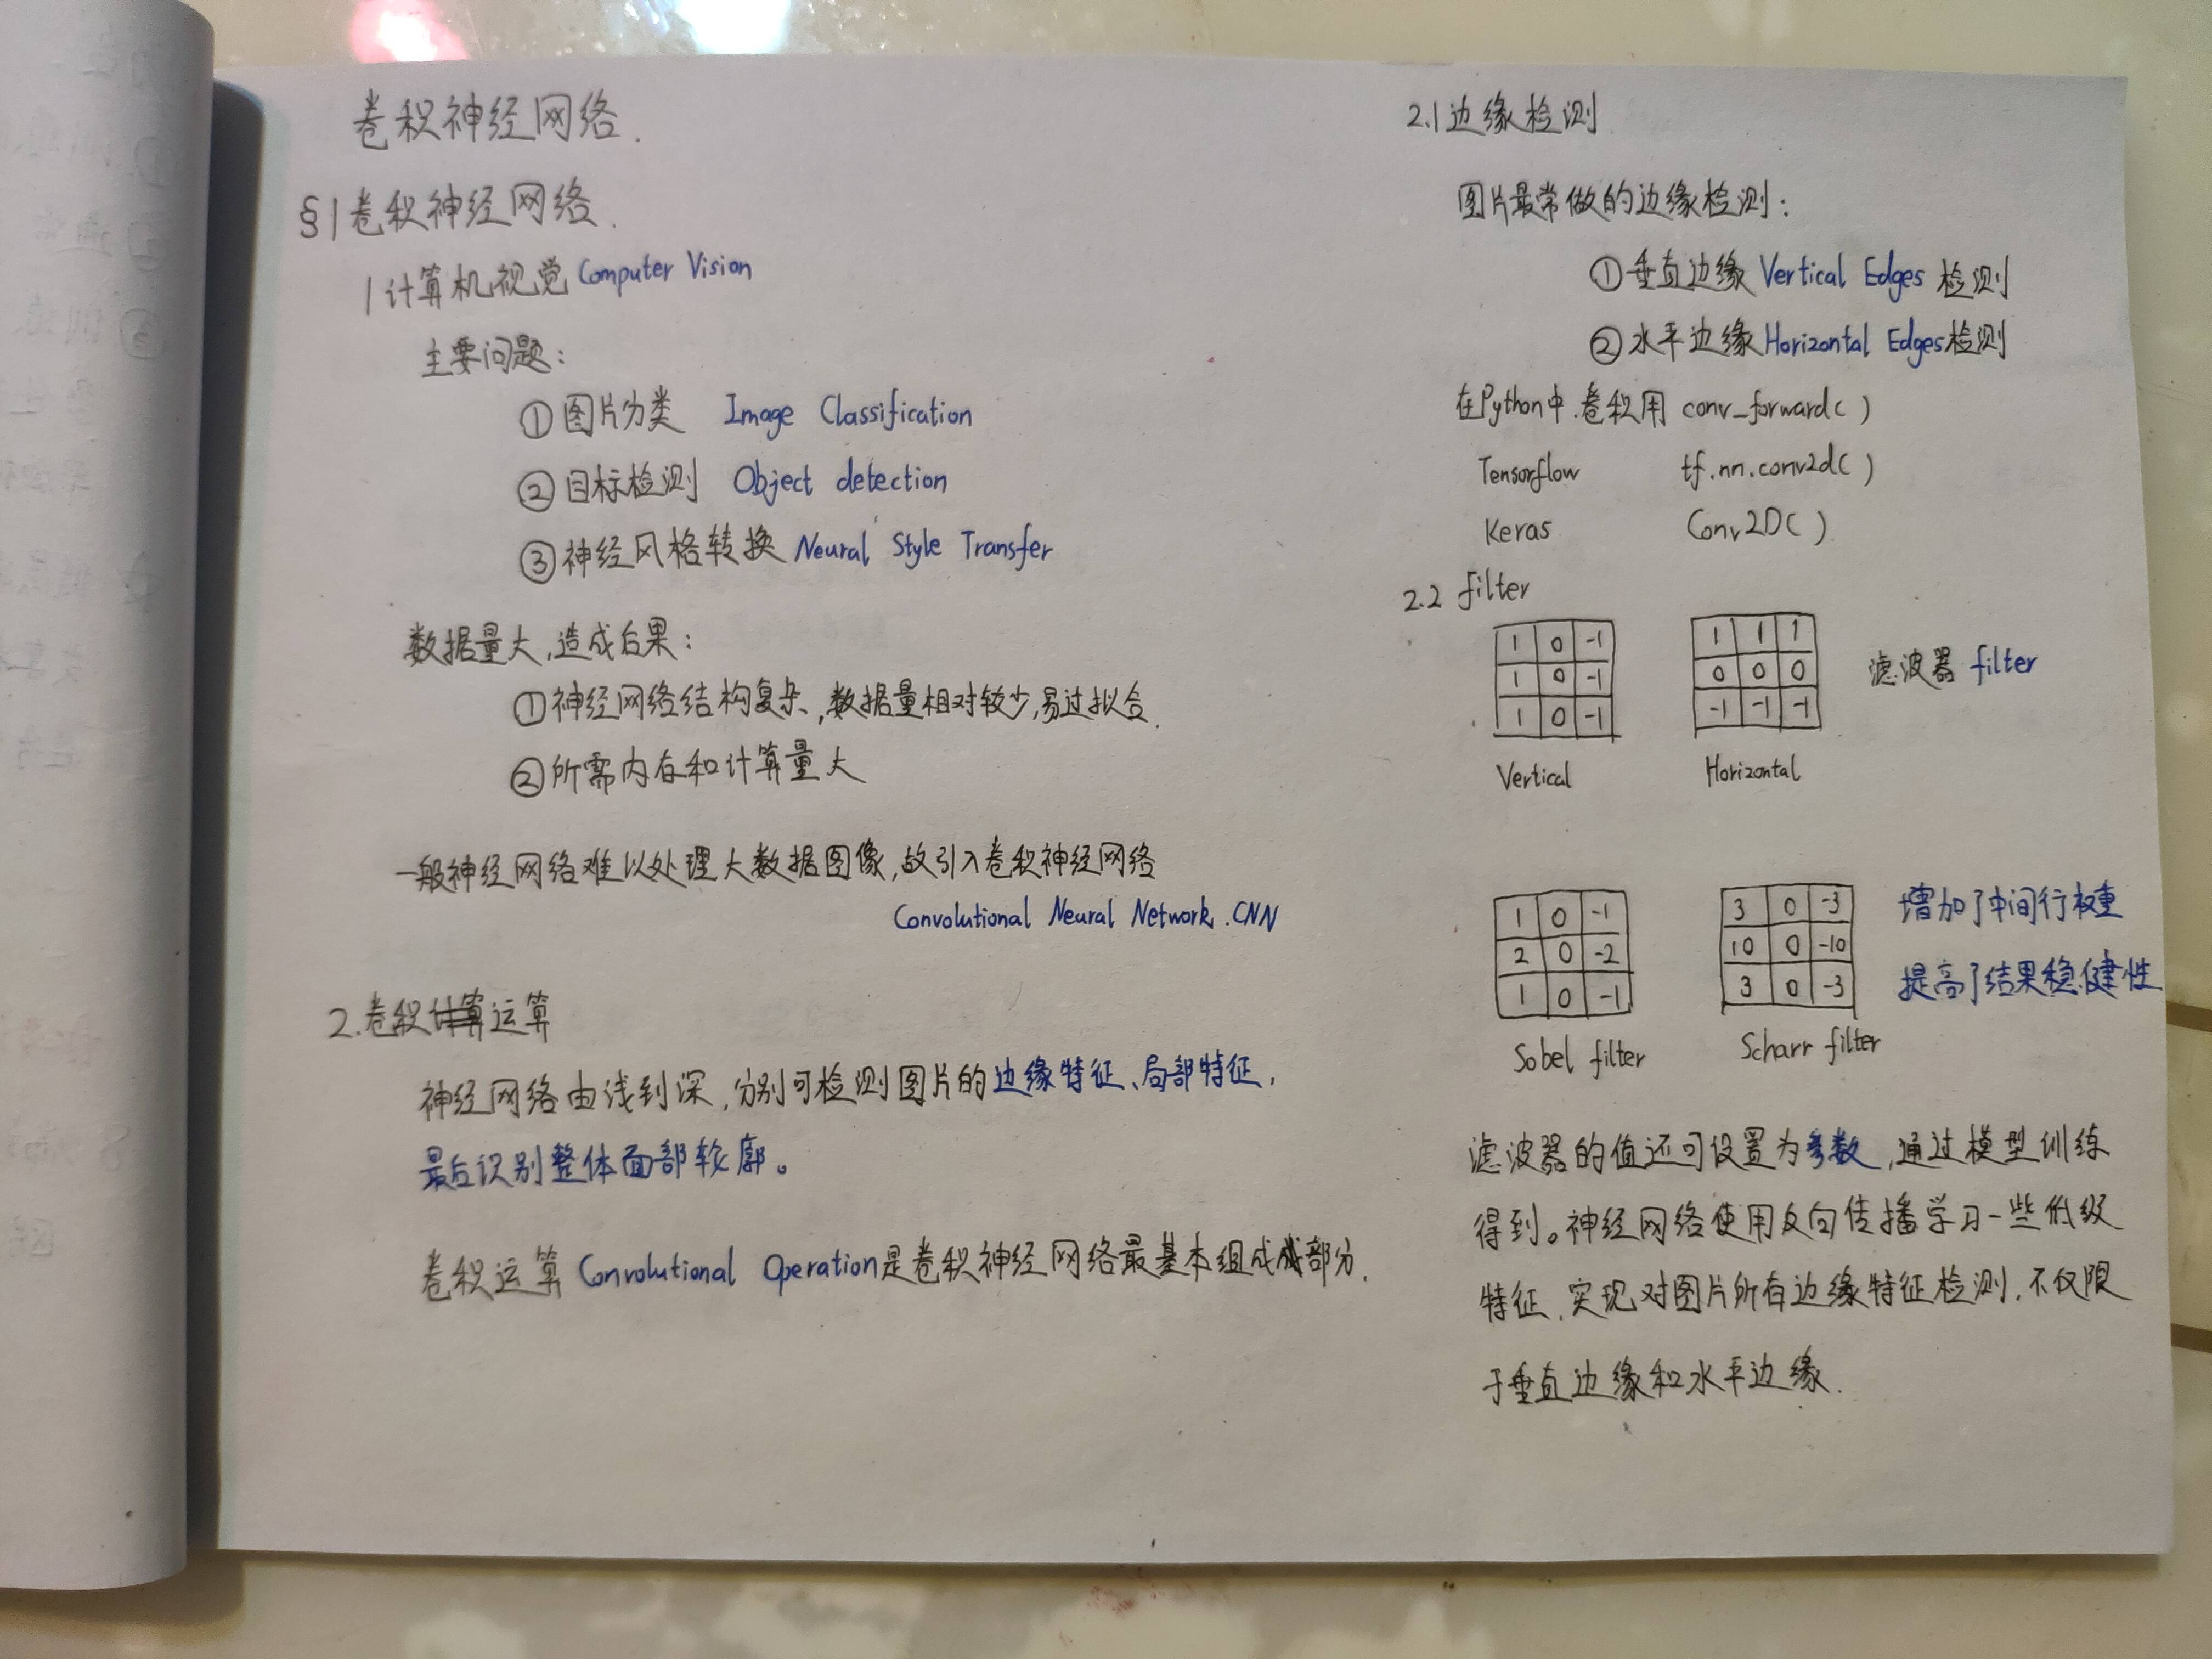 卷积神经网络.
§1 卷积神经网络.
1 计算机视觉 Computer Vision
主要问题:
①图片分类 Image Classification
②目标检测 Object detection
③神经风格转换 Neural Style Transfer
数据量大,造成后果:
①神经网络结构复杂,数据量相对较少,易过拟合.
②所需内存和计算量大
一般神经网络难以处理大数据图像,故引入卷积神经网络
Convolutional Neural Network.CNN
2.卷积运算
神经网络由浅到深,分别可检测图片的边缘特征、局部特征,
最后识别整体面部轮廓。
卷积运算 Convolutional Operation是卷积神经网络最基本组成部分.
2.1 边缘检测
图片最常做的边缘检测:
①垂直边缘 Vertical Edges 检测
②水平边缘 Horizontal Edges检测
在Python中.卷积用 conv_forward( )
Tensorflow tf.nn.conv2d( )
Keras Conv2D( )
2.2 filter
1 0 -1
1 0 -1
1 0 -1
Vertical
1 1 1
0 0 0
-1 -1 -1
Horizontal
滤波器 filter
1 0 -1
2 0 -2
1 0 -1
Sobel filter
3 0 -3
10 0 -10
3 0 -3
Scharr filter
增加了中间行权重
提高了结果稳健性
滤波器的值还可设置为参数,通过模型训练
得到。神经网络使用反向传播学习一些低级
特征.实现对图片所有边缘特征检测.不仅限
于垂直边缘和水平边缘.